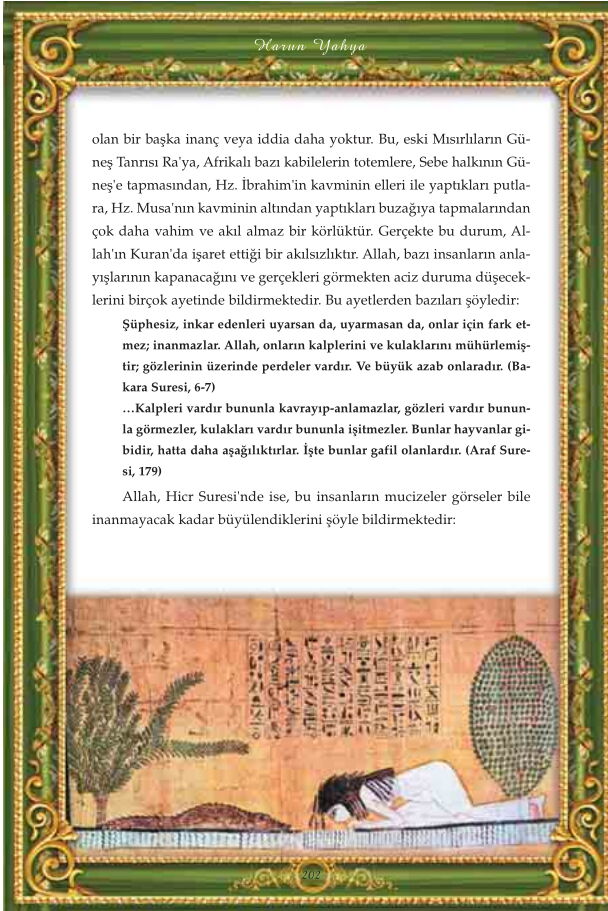 Harun Yahya
olan bir başka inanç veya iddia daha yoktur. Bu, eski Mısırlıların Gü-
neş Tanrısı Ra'ya, Afrikalı bazı kabilelerin totemlere, Sebe halkının Gü-
neş'e tapmasından, Hz. İbrahim'in kavminin elleri ile yaptıkları putla-
ra, Hz. Musa'nın kavminin altından yaptıkları buzağıya tapmalarından
çok daha vahim ve akıl almaz bir körlüktür. Gerçekte bu durum, Al-
lah'ın Kuran'da işaret ettiği bir akılsızlıktır. Allah, bazı insanların anla-
yışlarının kapanacağını ve gerçekleri görmekten aciz duruma düşecek-
lerini birçok ayetinde bildirmektedir. Bu ayetlerden bazıları şöyledir:
Şüphesiz, inkar edenleri uyarsan da, uyarmasan da, onlar için fark et-
mez; inanmazlar. Allah, onların kalplerini ve kulaklarını mühürlemiş-
tir; gözlerinin üzerinde perdeler vardır. Ve büyük azab onlaradır. (Ba-
kara Suresi, 6-7)
…Kalpleri vardır bununla kavrayıp-anlamazlar, gözleri vardır bunun-
la görmezler, kulakları vardır bununla işitmezler. Bunlar hayvanlar gi-
bidir, hatta daha aşağılıktırlar. İşte bunlar gafil olanlardır. (Araf Sure-
si, 179)
Allah, Hicr Suresi'nde ise, bu insanların mucizeler görseler bile
inanmayacak kadar büyülendiklerini şöyle bildirmektedir:
202